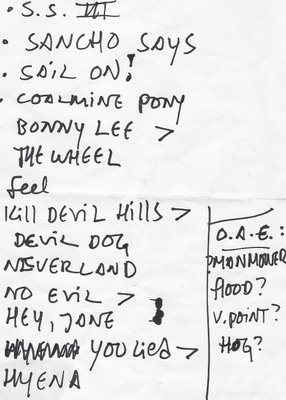 • S.S. VII
• SANCHO SAYS
• SAIL ON!
• COALMINE PONY
BONNY LEE >
THE WHEEL
feel
Kill DEVIL Hills >
DEVIL DOG
NEVERLAND
NO EVIL >
HEY, JANE
YOU LIED >
HYENA
O.A.E.:
flOOD?
V. POINT?
HOG?